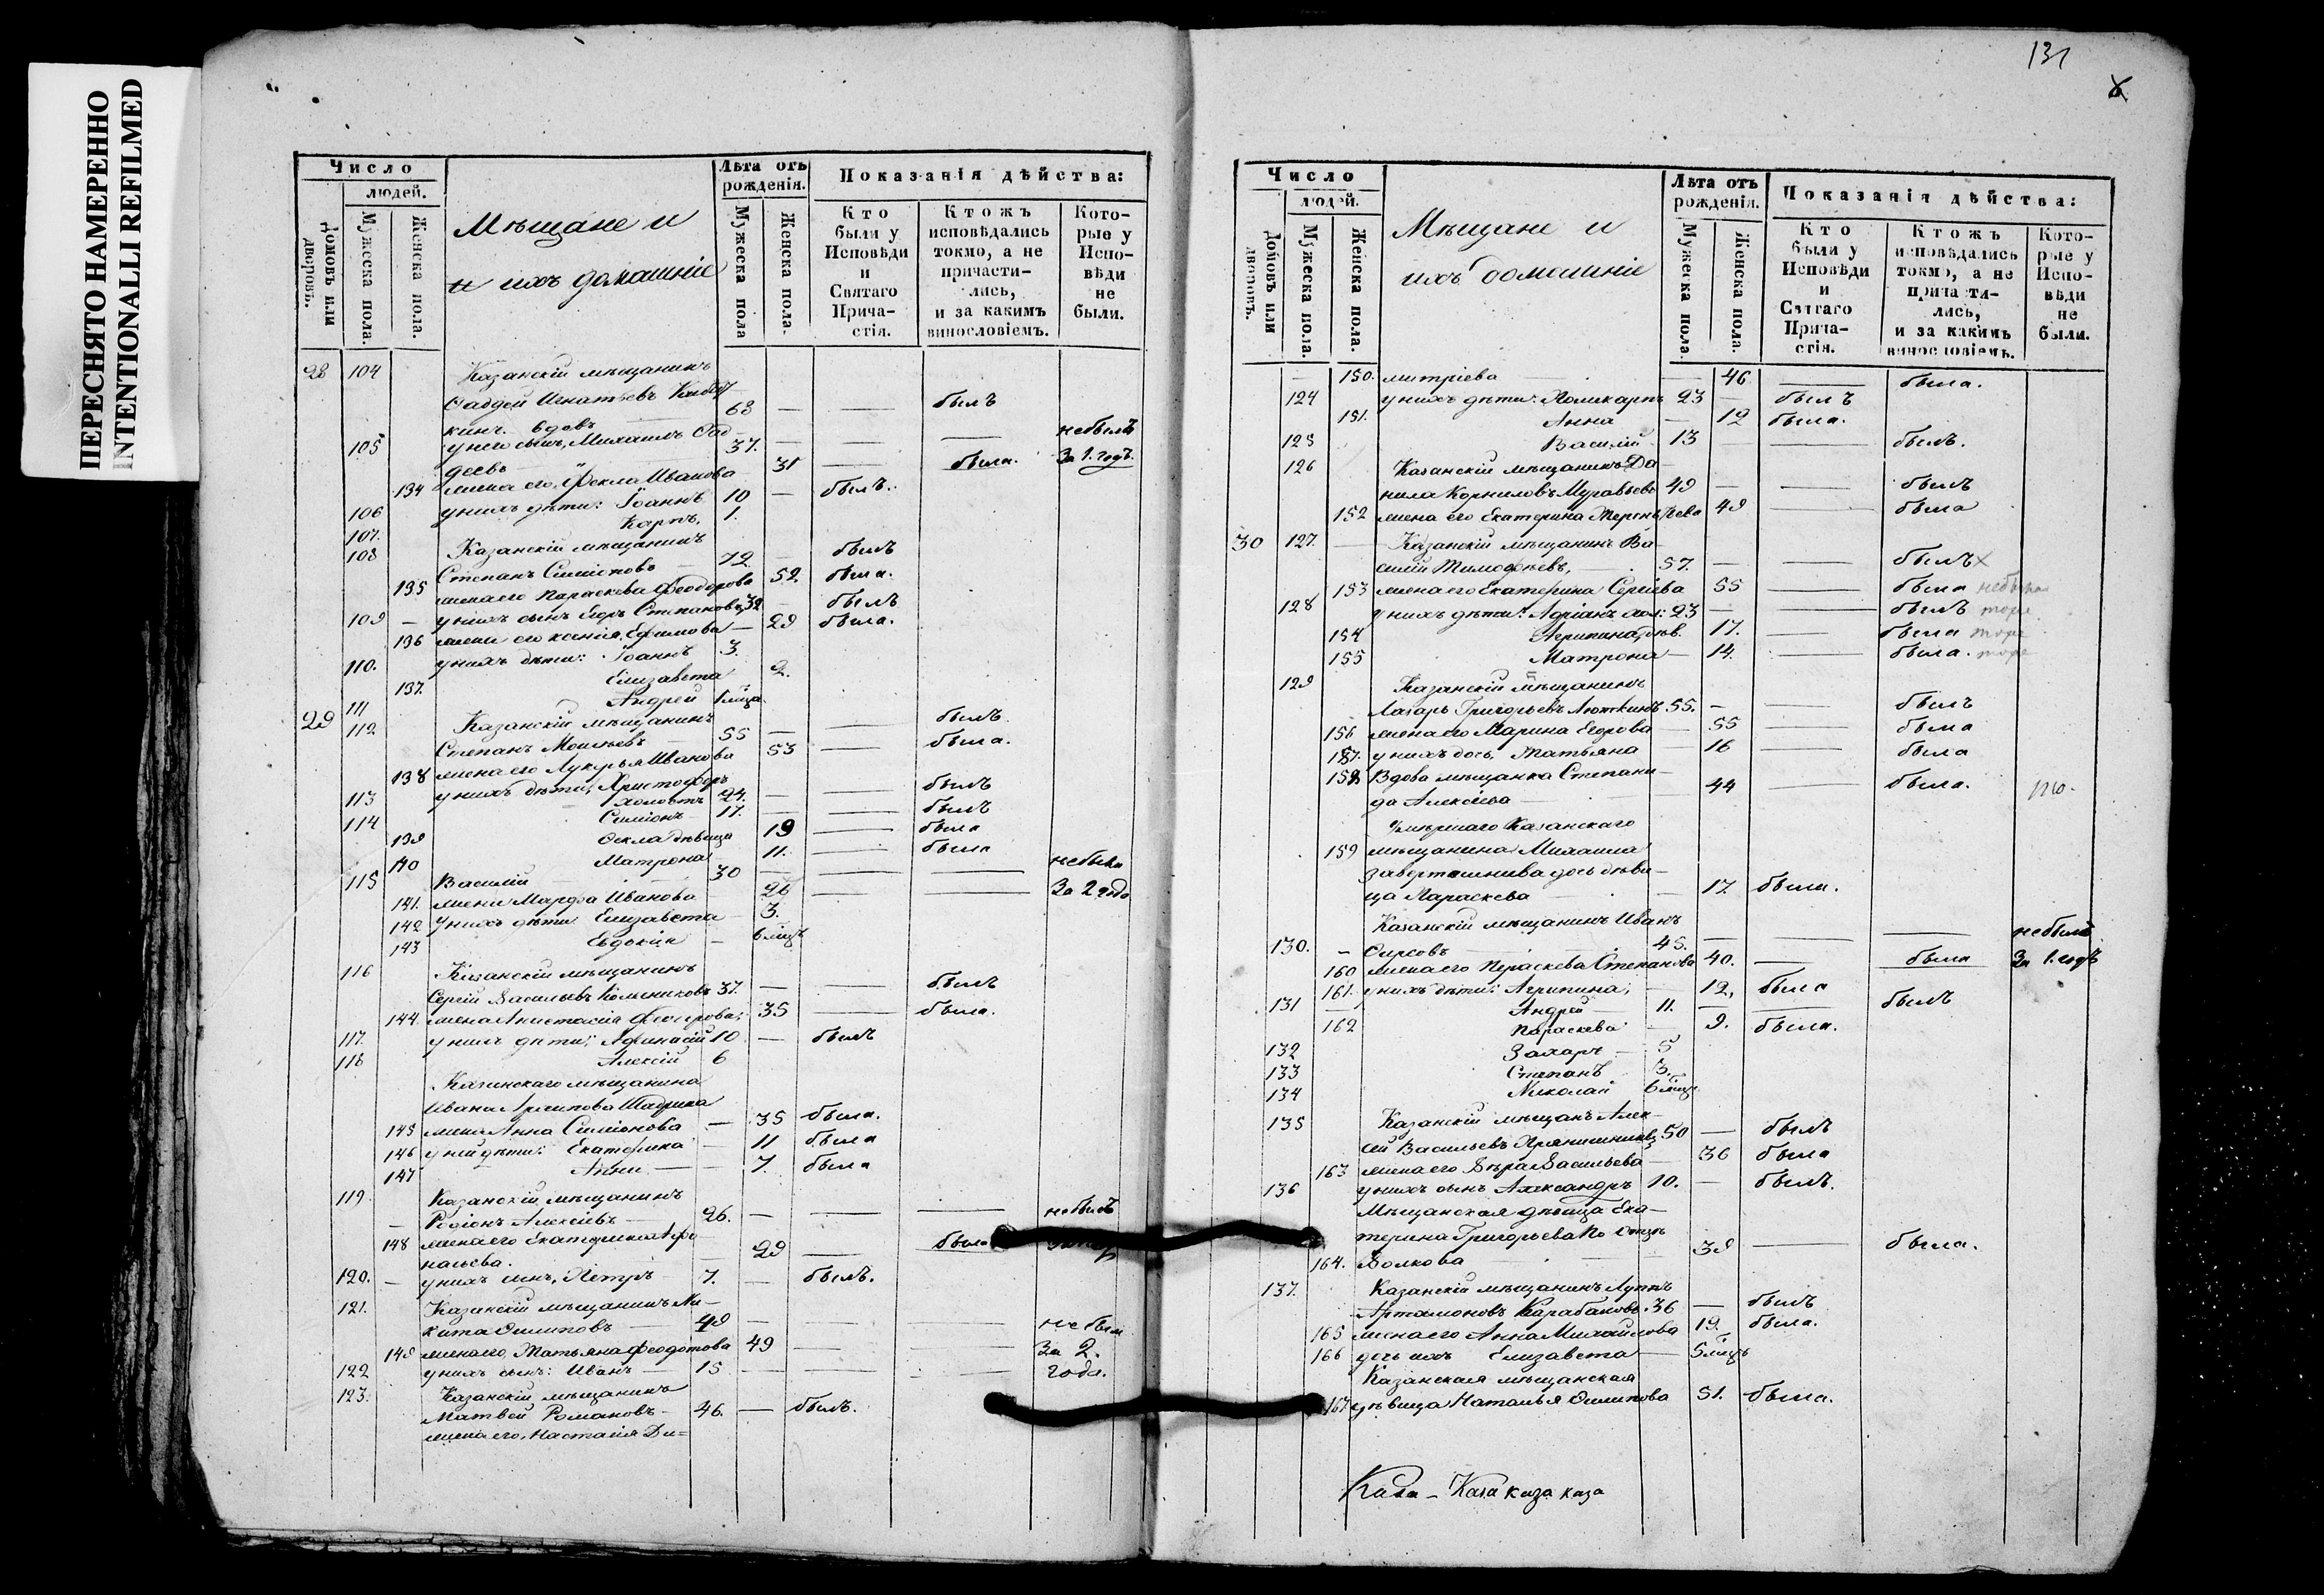 ПЕРЕСНЯТО НАМЕРЕННО
INTENTIONALLI REFILMED
Число
людей.
Домовъ или дворовъ.
Мужеска пола.
Женска пола.
Мѣщане и
и ихъ домашніе
Лѣта отъ рожденія.
Мужеска пола
Женска пола.
Показанія дѣйства:
Кто были у Исповѣди и Святаго Прича-стія.
Ктожъ исповѣдались токмо, а не причасти-лись, и за какимъ винословіемъ.
Кото-рые у Испо-вѣди не были.
28 104 Казанскій мѣщанинъ
Фаддей Игнатьевъ
кинъ. вдовъ 63 — — былъ
105 у него сынъ, Михаилъ Фад- 37. — — — небылъ
деевъ За 1. годъ.
134 жена его, Фекла Иванова 31 — была.
106 у нихъ дѣти: Іоаннъ 10 — былъ.
107. Карпъ, 1.
108 Казанскій мѣщанинъ
Степанъ Симіоновъ — 72 — былъ
135 жена его Параскева Феодорова 52. была.
109 — у нихъ сынъ Егоръ Степановъ 32 былъ
136 жена его Ксенія, Ефимова — 29 была.
110. у нихъ дѣти: Іоаннъ 3.
137. Елизавета 2.
111 Андрей 1 мѣца.
29 112. Казанскій мѣщанинъ
Степанъ Моисѣевъ — 55 — — былъ.
138 жена его Лукерья Иванова 53 — была.
113 у нихъ дѣти, Христофоръ
холостъ 24. — — былъ
114 Симіонъ 17. — — былъ
139 Фекла дѣвица 19 — была
140 Матрона 11. — была
115 Василій 30 — — — небыли
141. жена Марфа Иванова 26 — — За 2 года
142 У нихъ дѣти Елизавета 3.
143 Евдокія — 6 мѣцъ
116 Казанскій мѣщанинъ
Сергій Васильевъ 37. — — былъ
144. жена Анастасія 35 — была.
117. у нихъ дѣти: Афанасій 10 — былъ
118 Алексій 6
Казанскаго мѣщанина
Ивана Архипова
145 жена Анна Симіонова — 35 была.
146 у ней дѣти: Екатерина — 11 была
147 Анна — 7. была
119. Казанскій мѣщанинъ
— Родіонъ Алексіевъ — 26. — — — небылъ
148 жена его Екатерина Афа
насьева. 29 — была
120. — у нихъ сынъ, Петръ 7. — былъ.
121. Казанскій мѣщанинъ Ни-
кита Осиповъ — 49 — — — небыли
149 жена его, Татьяна Феодотова 49 — — За 2.
122 у нихъ сынъ: Иванъ — 15 — — — года.
123. Казанскій мѣщанинъ
Матвей Романовъ — 46. — былъ.
жена его, Настасія Ди=
131
Число
людей.
Домовъ или дворовъ.
Мужеска пола.
Женска пола.
Мѣщане и
ихъ домашніе
Лѣта отъ рожденія.
Мужеска пола.
Женска пола.
Показанія дѣйства:
Кто были у Исповѣди и Святаго Прича-стія.
Ктожъ исповѣдались токмо, а не причасти-лись, и за какимъ винословіемъ.
Кото-рые у Испо-вѣди не были.
— 150. митріева — — 46 — была.
124 у нихъ дѣти: Поликарпъ 23 — былъ
151. Анна — 12 была.
125 Василій 13 — — былъ.
126 Казанскій мѣщанинъ Да-
нила Корниловъ Муравьевъ 49 — — былъ
152 жена его Екатерина Терентьева 49 — была
30 127. — Казанскій мѣщанинъ Ва-
силій Тимофеевъ, 57. — — былъ х
153 жена его Екатерина Сергіева 55 — была
128 у нихъ дѣти: Адріанъ хол: 23 — — былъ тоже
154 Агрипина, дѣв. 17. — была тоже
155 Матрона — 14. — была. тоже
129 Казанскій мѣщанинъ
Лазарь Григорьевъ 55. — — былъ
156 жена его Марина Егорова — 55 — была
157. у нихъ дочь, Татьяна — 16 — была
158 Вдова мѣщанка Степани-
да Алексіева — 44 — была.
Умершаго Казанскаго
159 мѣщанина Михаила
дочь дѣви-
ца Параскева — 17. была.
Казанскій мѣщанинъ Иванъ
130. — Фирсовъ 45. — — — небылъ
160 жена его Параскева Степанова 40. — была За 1. годъ
161. у нихъ дѣти: Агрипина, — 12, была
131 Андрей 11. — — былъ
162 Параскева — 9. была.
132 Захаръ — 5
133 Степанъ 3.
134 Николай 6 мѣцъ
135 Казанскій мѣщанъ Алек-
сій Васильевъ Прянишниковъ 50 — былъ
163 жена его Вѣра Васильева 36 была
136 у нихъ сынъ Александръ 10. — былъ.
Мѣщанская дѣвица Ека-
терина Григорьева По отцѣ
164. Волкова 39 — была.
137. Казанскій мѣщанинъ Луппъ
Артамоновъ Карабановъ. 36 — былъ
165 жена его Анна Михайлова 19. была.
166 дочь ихъ Елизавета — 5 мѣцъ
Казанская мѣщанская
167 дѣвица Наталья Осипова 51. была.
Каза – Каза каза каза